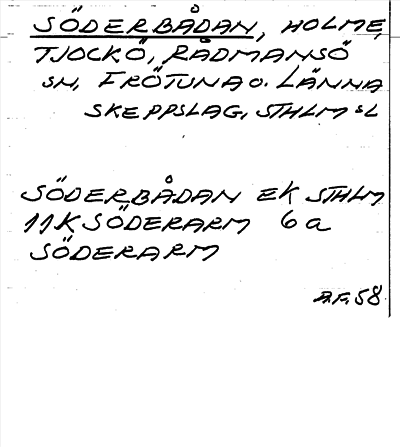 SÖDERBÅDAN, HOLME,
TJOCKÖ, RÅDMANSÖ
SN, FRÖTUNA O. LÄNNA
SKEPPSLAG, STHLM SL
SÖDERBÅDAN EK STHLM
11K SÖDERARM 6a
SÖDERARM
A.F. 58